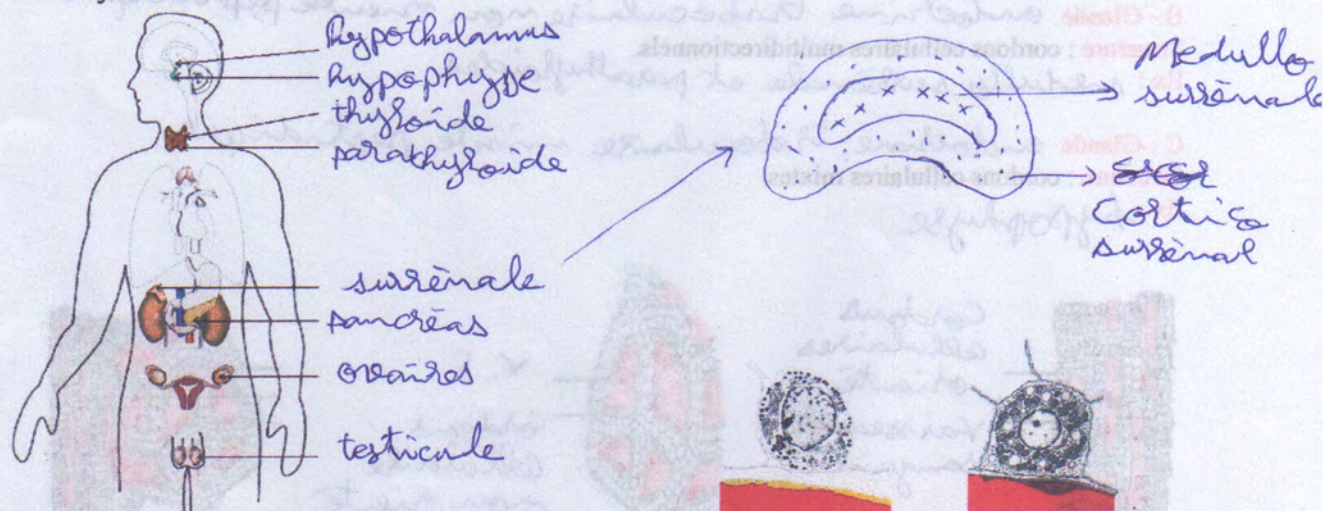 hypothalamus
hypophyse
thyroïde
parathyroïde
surrénale
pancréas
ovaires
testicule
Medullo
surrénale
Cortico
surrénal